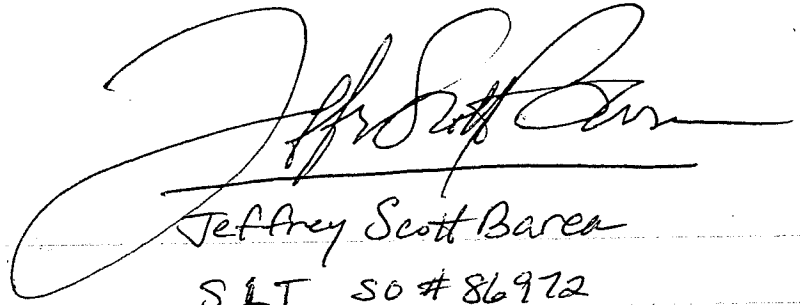 Jeffrey Scott Barea
Jeffrey Scott Barea
SLT SO # 86972